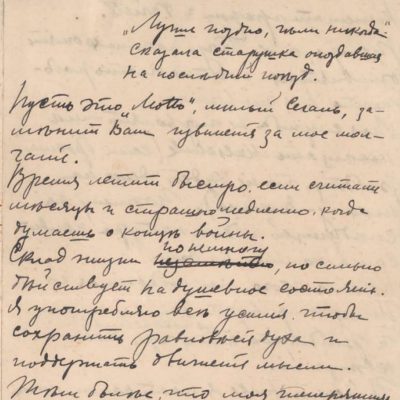 „Лучше поздно, чѣмъ никогда"
сказала старушка опоздавшая
на послѣдній поѣздъ.
Пусть это „Motto", милый Сегалъ, за-
мѣнитъ Вамъ за мое мол-
чаніе.
Время летитъ быстро, если считать
мѣсяцы и страшно медленно, когда
думаешь о концѣ войны.
Складъ жизни понемногу, но сильно
дѣйствуетъ на душевное состояніе.
Я употребляю всѣ усилія, чтобы
сохранить равновѣсіе духа и
поддержать движеніе мысли.
Тѣмъ болѣе, что моя теперешняя